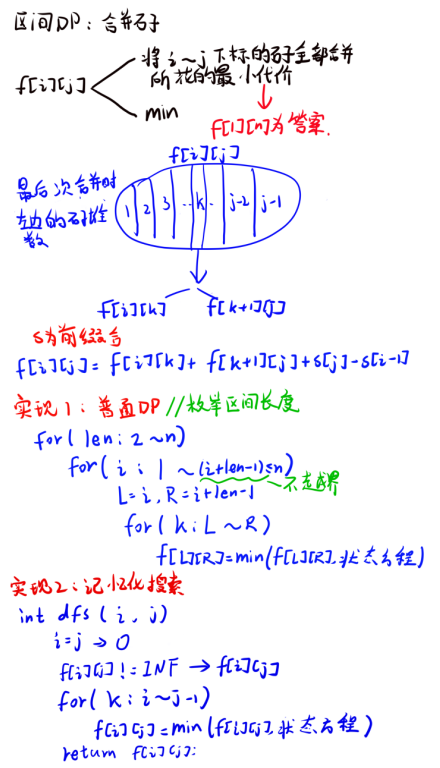 区间DP：合并石子
f[i][j]
将 i ~ j 下标的石子全部合并
所花的最小代价
min
f[1][n]为答案.
f[i][j]
最后一次合并时
左边的石子堆
数
1 2 3 ··k· j-2 j-1
f[i][k] f[k+1][j]
S为前缀和
f[i][j] = f[i][k] + f[k+1][j] + s[j] - s[i-1]
实现1：普通DP //枚举区间长度
for( len : 2 ~ n)
for( i : 1 ~ (i+len-1)≤n)
L=i, R=i+len-1
不越界
for( k : L ~ R)
f[L][R]=min(f[L][R],状态方程)
实现2：记忆化搜索
int dfs ( i , j )
i=j → 0
f[i][j] != INF → f[i][j]
for( k : i ~ j-1)
f[i][j]=min(f[i][j],状态方程)
return f[i][j];